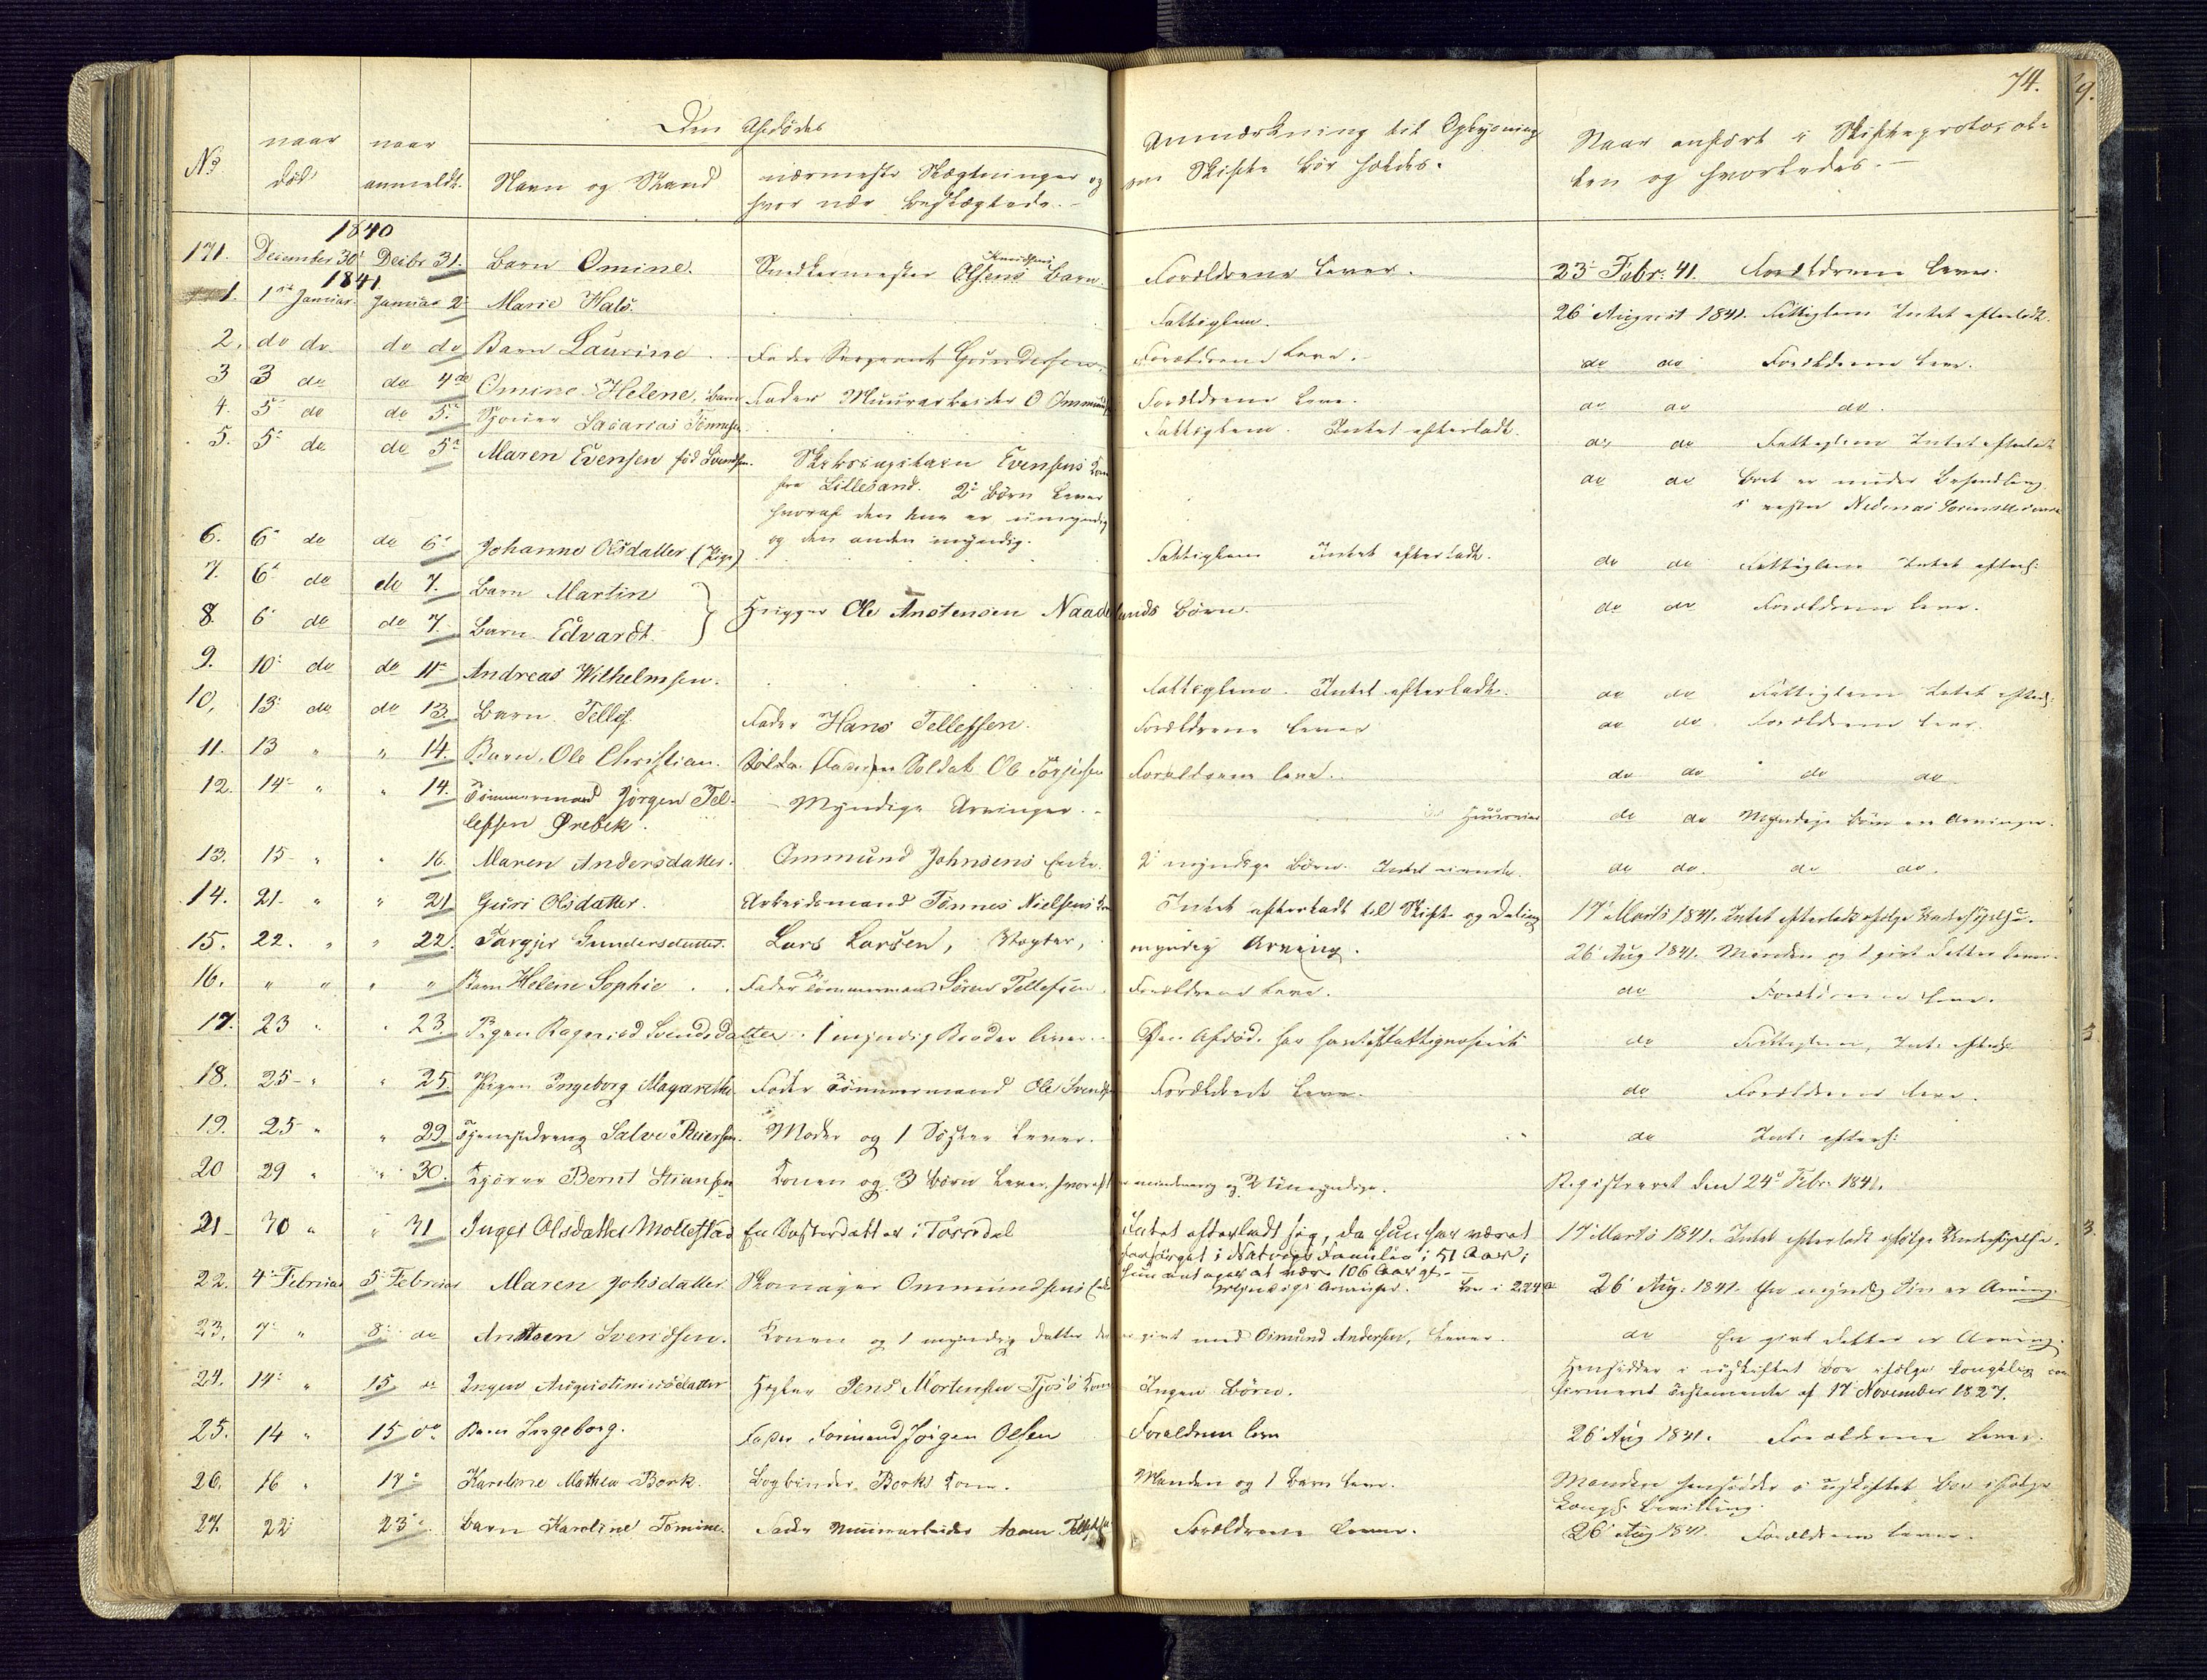 74.
Den Afdødes
No
naar død
naar anmeldt.
Navn og Stand
nærmeste Slægtninger og hvor nær beslægtede.
Anmærkning til Oplysning om Skifte bør holdes.
Naar anført i Skifteprotocollen og hvorledes.
1840
171. December 30 Decbr 31. Barn Omine. Snedkermester Knudsens Olsens Barn Forældrene lever. 23 Febr: 41. Forældrene lever.
1841.
1. 1ste Januar. Januar 2 Marie Hals. Fattiglem. 26 August 1841. Fattiglem Intet efterladt.
2. do do do do Barn Laurine Fader Sergeant Gundersen. Forældrene leve. do do Forældrene leve.
3 3 do do 4de Omine Helene, Barn Fader Muurarbeider O Ommunds Forældrene leve. do do do.
4. 5 do do 5. Sacarias Tønnesen Fattiglem. Intet efterladt. do do Fattiglem Intet efterladt
5. 5 do do 5 Maren Evensen fød Svendsen. Skibscapitain Evensens Kone fra Lillesand. 2 Børn lever hvoraf den ene er umyndig og den anden myndig. do do Boet er under Behandling i Nedenæs
6. 6 do do 6 Johanne Olsdatter (Pige) Fattiglem Intet efterladt. do do Fattiglem Intet efterl:
7. 6 do do 7. Barn Martin
8. 6 do do 7. Barn Edvardt Ole Anstensen Naadelands Børn. do do Forældrene leve.
9. 10 do do 11 Andreas Wilhelmsen. Fattiglem. Intet efterladt. do do Fattiglem Intet efterl:
10, 13 do do 13. Barn Tellef Fader Hans Tellefsen. Forældrene lever do do. Forældrene leve.
11. 13 " " 14. Barn, Ole Christian. Soldat Ole Forældrene leve. do do do do
12. 14 " " 14. Tømmermand Jørgen Tellefsen Ørebek. Myndige Arvinger. do do Myndige Børn ere Arvinger.
13. 15 " " 16. Maren Andersdatter. Ommund Johnsens Enke. 2 myndige Børn. Intet eiende. do do. do do.
14. 21 " " 21 Guri Olsdatter. Arbeidsmand Tønnes Nielsens Kone Intet efterladt til Skifte og Deling 17 Marts 1841. Intet efterladt ifølge
15. 22. " " 22. Targjer Gundersdatter. Lars Larsen, Vægter, myndig Arving. 26 Aug 1841. Manden og 1 givt Datter lever.
16. " " " " Barn Helene Sophie Fader Tømmermand Søren Tellefsen Forældrene leve. do Forældrene leve.
17. 23 " " 23. Pigen Ragnild Svendsdatter 1 myndig Broder lever. Den Afdøde har havt do Fattiglem, Int. efterl:
18. 25 " " 25. Pigen Ingeborg Magarethe Fader Tømmermand Ole Svends Forældrene leve. do Forældrene leve.
19. 25 " " 29 Tjenestedreng Salve Reiersen. Moder og 1 Søster lever. do Int: efterl:
20 29 " " 30. Bernt Stiansen Konen og 3 Børn lever, hvoraf 1 er myndig og 2 Umyndige. Registreret den 24 Febr. 1841.
21 30 " " 31 Inger Olsdatter Mollestad En Søsterdatter i Torridal Intet efterladt sig, da hun har været forsørget i Familie i 51 Aar; hun antages at være 106 Aar gl. 17 Marts 1841. Intet efterladt ifølge
22. 4 Februar 5 Februar Maren Johsdatter Skomager Ommundsens Enke Myndige Arvinger. 26 Aug: 1841. En myndig Søn er Arving.
23. 7 " 8 do Svendsen. Konen og 1 myndig Datter der er givt med Osmund Andersen, lever. do En givt Datter er Arving.
24. 14 " 15 do Ingen Augustinusdatter Jens Mortensen Tjos's Kone Ingen Børn. Hensidder i uskiftet Boe ifølge kongelig confirmeret Testamente af 17 November 1827.
25. 14 " 15 do Barn Ingeborg. Fader Jørgen Olsen Forældrene leve 26 Aug 1841. Forældrene lever.
26. 16 " 17 Karoline Mathea Bork. Bogbinder Borks Kone. Manden og 1 Barn leve. Manden hensidder i uskiftet Boe ifølge kongl. Bevilling.
27. 22 23 Barn Karoline Tomine. Fader Muurarbeider Forældrene lever. 26 Aug 1841. Forældrene lever.